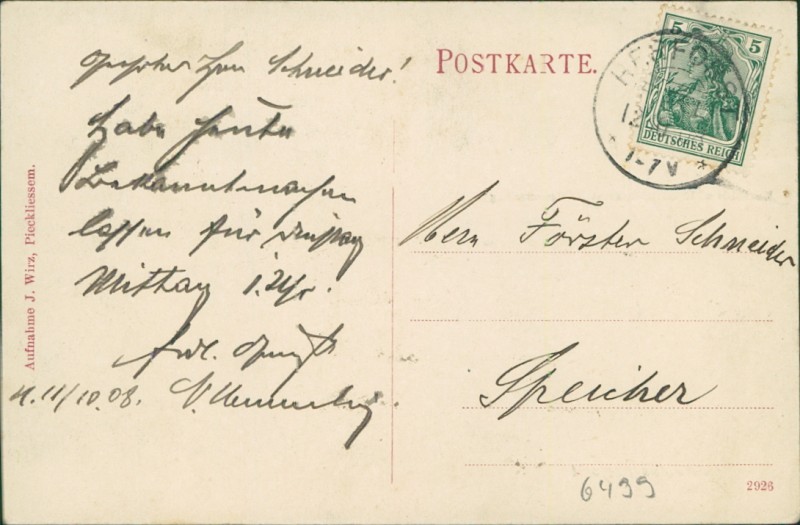 Geehrter Herr Schneider!
Habe heute
Bekanntmachen
lassen für Dienstag
Mittag 1. Uhr.
frdl. Gruß
H. 11/10.08.
Aufnahme J. Wirz, Pieckliessem.
POSTKARTE.
5 5
DEUTSCHES REICH
12
* 7-7N *
Herrn Förster Schneider
Speicher
6499
2926